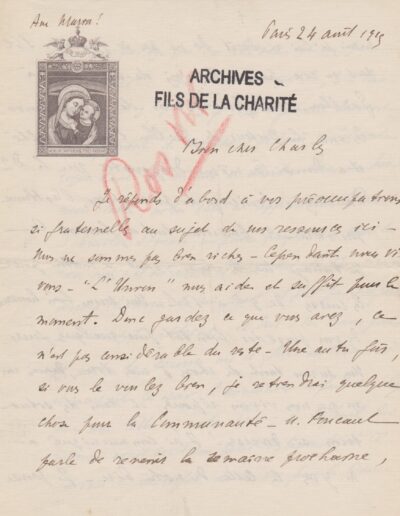 Ave Maria!
Paris 24 août 1915
ARCHIVES
FILS DE LA CHARITÉ
Bien cher Charles
Je réponds d'abord à vos préoccupations
si fraternelles au sujet de nos ressources ici -
Nous ne sommes pas bien riches - Cependant nous vi
vons - "L'Union" nous aide et suffit pour le
moment. Donc gardez ce que vous avez, ce
n'est pas considérable du reste - Une autre fois,
si vous le voulez bien, je retiendrai quelque
chose pour la Communauté -
parle de revenir la semaine prochaine,